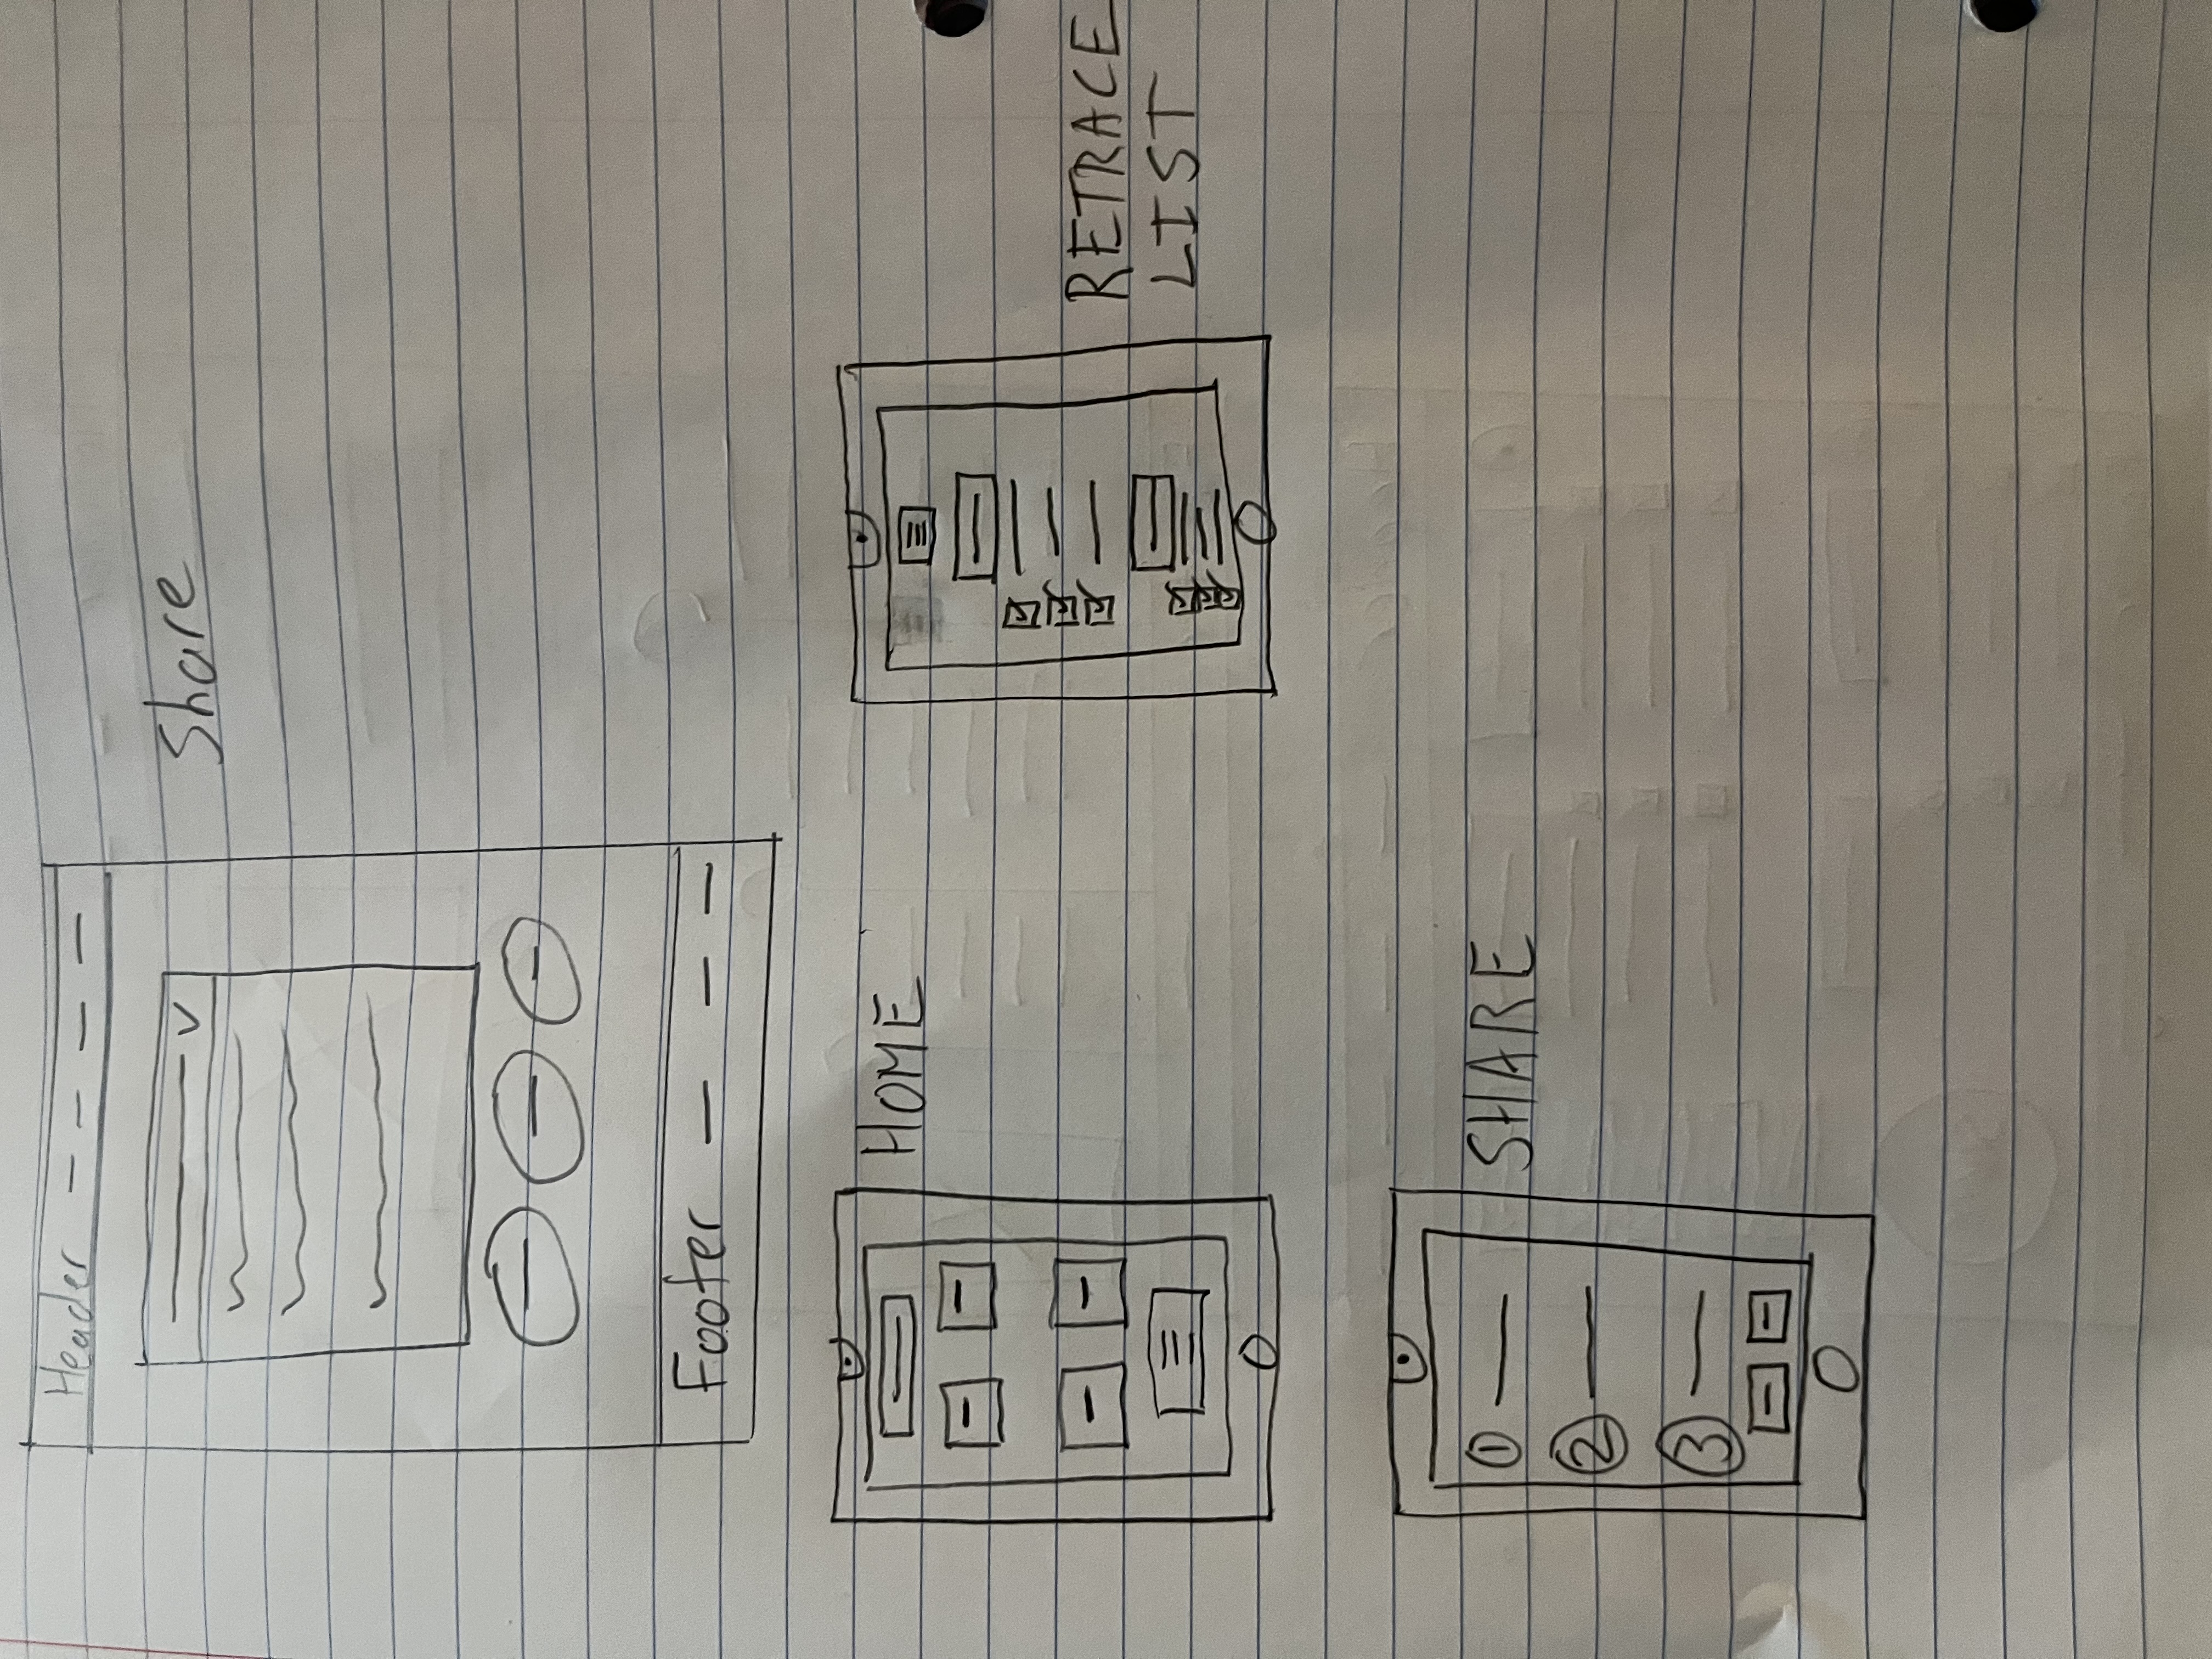 Header
Share
Footer
HOME
RETRACE
LIST
1
SHARE
2
3